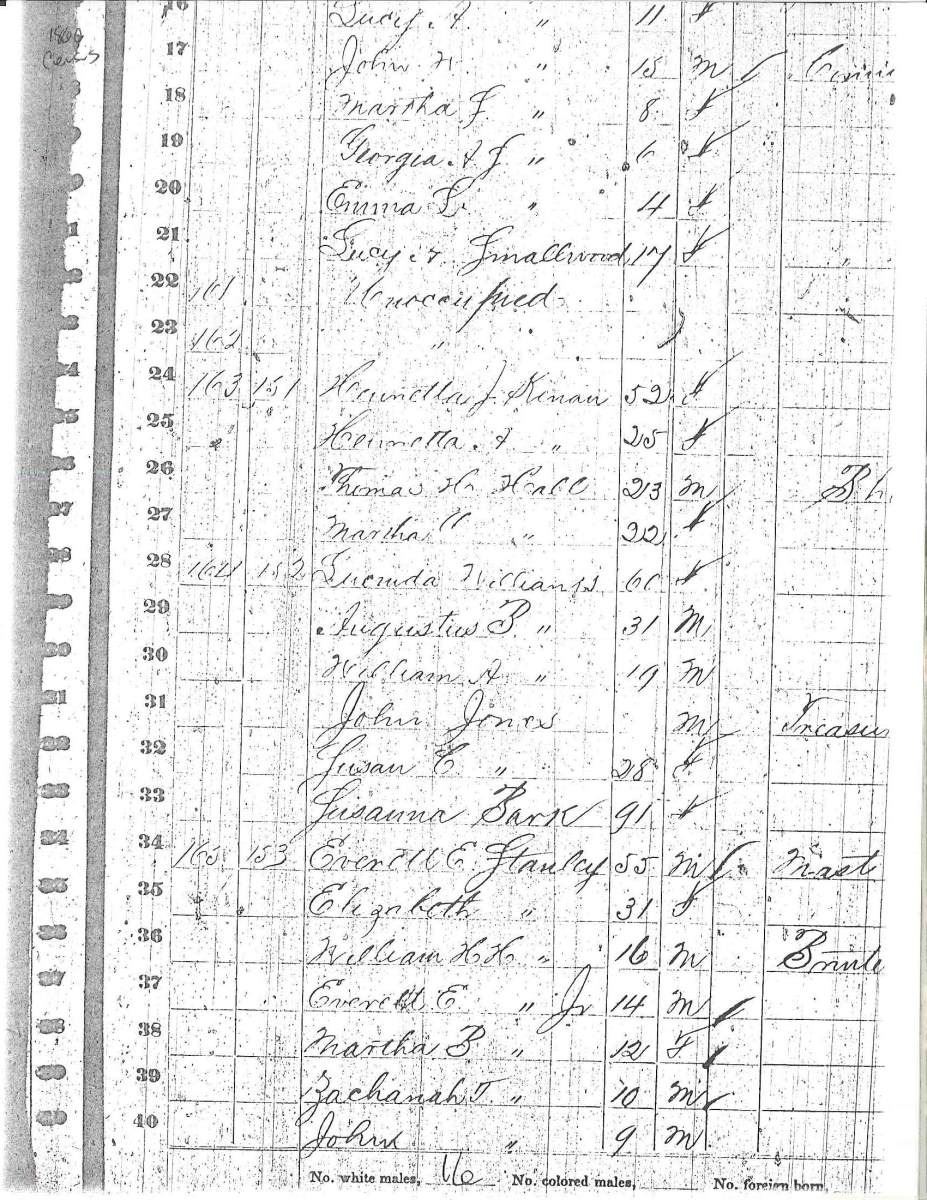 1860
Census
16 Lucy A. " 11 f
17 John W. " 15 m
18 Martha F. " 8 f
19 Georgia A F " 6 f
20 Emma L. " 4 f
21 Lucy A. Smallwood 17 f
22 161 Unoccupied
23 162 "
24 163 151 J. Kenan 52 f
25 Henrietta A " 25 f
26 Thomas H. Hall 23 m B
27 Martha " 22 f
28 164 152 Lucinda Williams 60 f
29 Augustus B " 31 M
30 William A " 19 M
31 John Jones M Treasur
32 Susan E " 28 f
33 Susanna Bark 91 f
34 165 153 Everett E. Stanley 55 M Mast
35 Elizabeth " 31 f
36 William H H " 16 M
37 Everett E " Jr 14 M
38 Martha B " 12 F
39 Zachariah T. " 10 M
40 John " 9 M
No. white males, 16 No. colored males, No. foreign born,